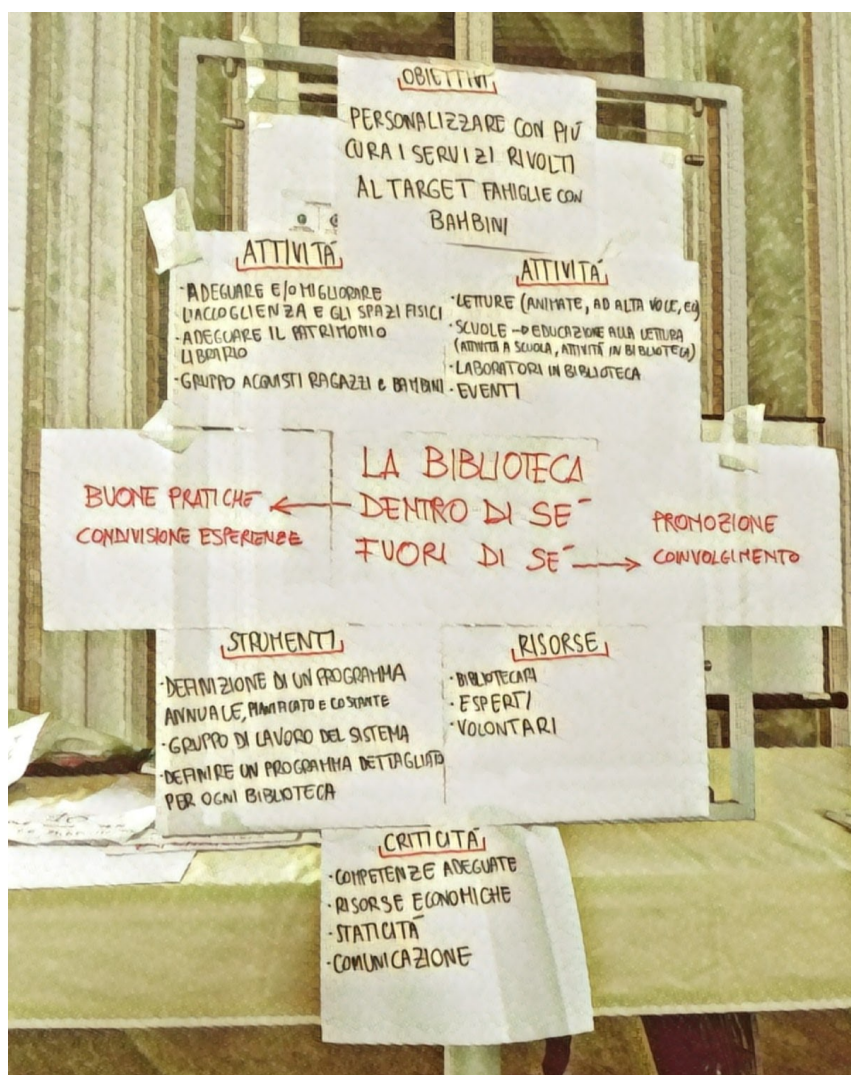 OBIETTIVI
PERSONALIZZARE CON PIÚ
CURA I SERVIZI RIVOLTI
AL TARGET FAMIGLIE CON
BAMBINI
ATTIVITÀ
·ADEGUARE E/O MIGLIORARE
L'ACCOGLIENZA E GLI SPAZI FISICI
·ADEGUARE IL PATRIMONIO
LIBRARIO
·GRUPPO ACQUISTI RAGAZZI e BAMBINI
ATTIVITÀ
·LETTURE (ANIMATE, AD ALTA VOCE,
·SCUOLE → EDUCAZIONE ALLA LETTURA
(ATTIVITÀ A SCUOLA, ATTIVITÀ IN BIBLIOTECA)
·LABORATORI IN BIBLIOTECA
·EVENTI
BUONE PRATICHE ←
CONDIVISIONE ESPERIENZE
LA BIBLIOTECA
DENTRO DI SÉ
FUORI DI SÉ →
PROMOZIONE
COINVOLGIMENTO
STRUMENTI
·DEFINIZIONE DI UN PROGRAMMA
ANNUALE, PIANIFICATO E COSTANTE
·GRUPPO DI LAVORO DEL SISTEMA
·DEFINIRE UN PROGRAMMA DETTAGLIATO
PER OGNI BIBLIOTECA
RISORSE
·BIBLIOTECARI
·ESPERTI
·VOLONTARI
CRITICITÀ
·COMPETENZE ADEGUATE
·RISORSE ECONOMICHE
·STATICITÀ
·COMUNICAZIONE